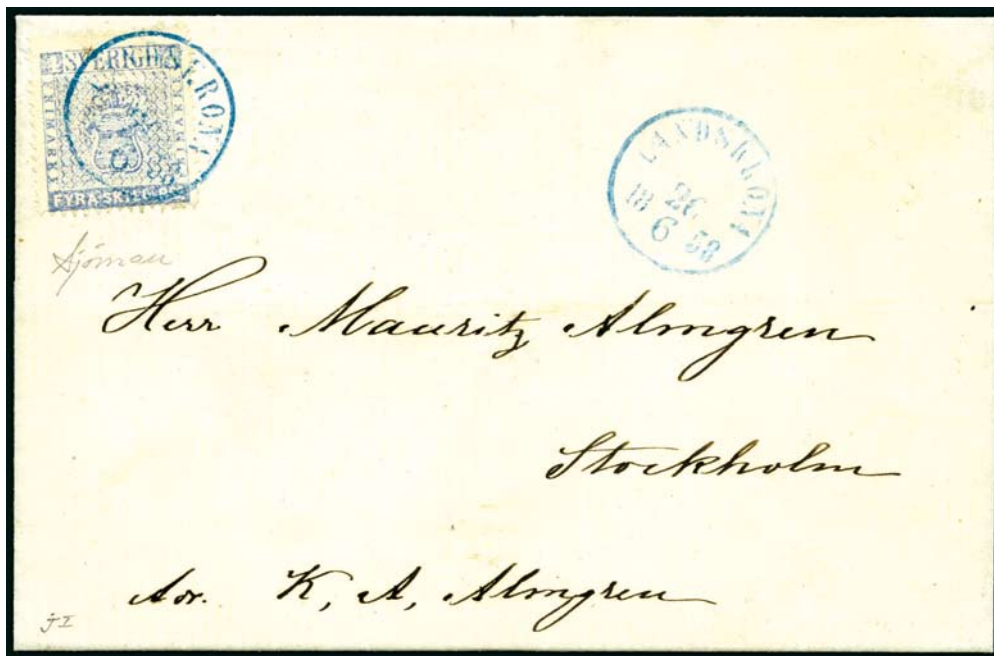 SVERIGE
FRIMÄRKE
FRIMÄRKE
FYRA SKILL. BCO.
LANDSKRONA
26
18 6 58
Sjöman
Herr Mauritz Almgren
Stockholm
Adr. K. A. Almgren